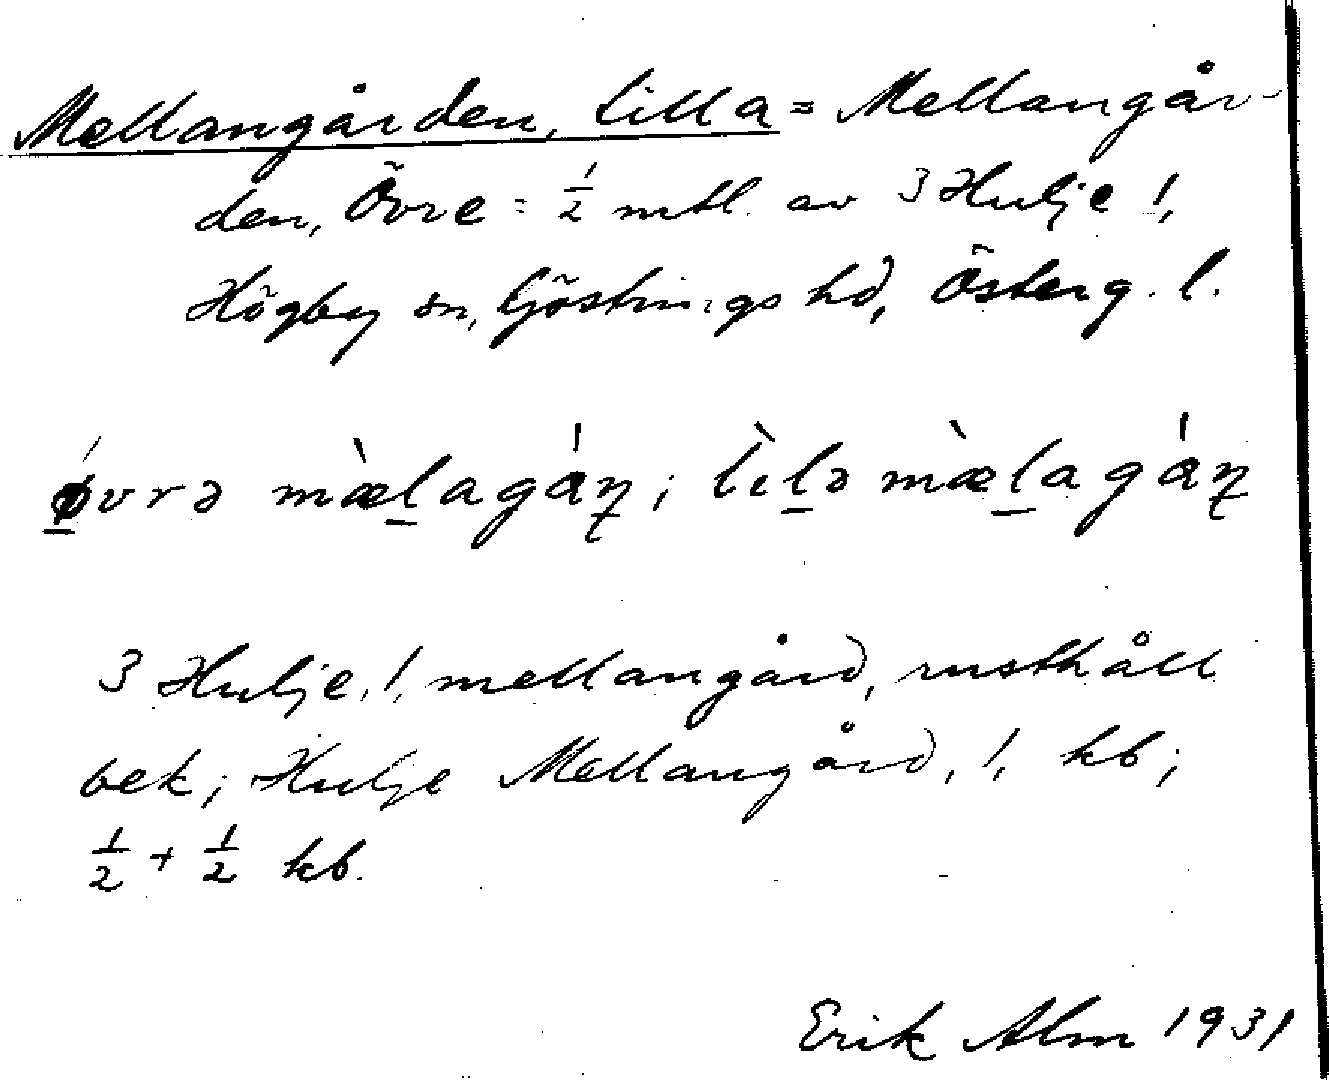 Mellangården, lilla = Mellangår-
den, Övre = 1/2 mtl. av 3 Hulje 1,
Högby sn, Göstrings hd, Österg. l.
ǿvrə mæ̀l̲agáɳ; lìl̲ə mæ̀l̲agáɳ
3 Hulje, 1, mellangård, rusthåll
bek; Hulje Mellangård, 1, kb;
1/2 + 1/2 kb.
Erik Alm 1931